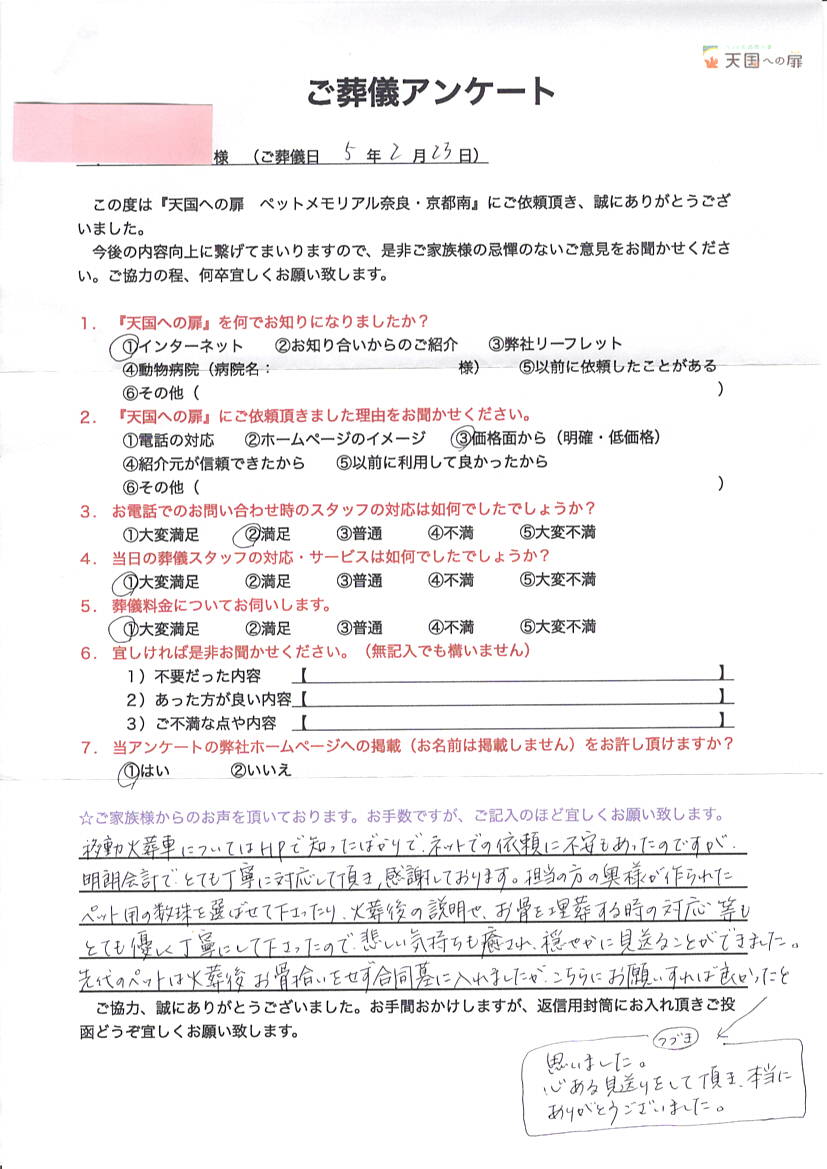 天国への扉
ご葬儀アンケート
様 (ご葬儀日 5 年 2 月 23 日)
この度は『天国への扉 ペットメモリアル奈良・京都南』にご依頼頂き、誠にありがとうござ
いました。
今後の内容向上に繋げてまいりますので、是非ご家族様の忌憚のないご意見をお聞かせくださ
い。ご協力の程、何卒宜しくお願い致します。
1. 『天国への扉』を何でお知りになりましたか?
①インターネット ②お知り合いからのご紹介 ③弊社リーフレット
④動物病院(病院名: 様) ⑤以前に依頼したことがある
⑥その他( )
2. 『天国への扉』にご依頼頂きました理由をお聞かせください。
①電話の対応 ②ホームページのイメージ ③価格面から(明確・低価格)
④紹介元が信頼できたから ⑤以前に利用して良かったから
⑥その他( )
3. お電話でのお問い合わせ時のスタッフの対応は如何でしたでしょうか?
①大変満足 ②満足 ③普通 ④不満 ⑤大変不満
4. 当日の葬儀スタッフの対応・サービスは如何でしたでしょうか?
①大変満足 ②満足 ③普通 ④不満 ⑤大変不満
5. 葬儀料金についてお伺いします。
①大変満足 ②満足 ③普通 ④不満 ⑤大変不満
6. 宜しければ是非お聞かせください。(無記入でも構いません)
1)不要だった内容 【 】
2)あった方が良い内容【 】
3)ご不満な点や内容 【 】
7. 当アンケートの弊社ホームページへの掲載(お名前は掲載しません)をお許し頂けますか?
①はい ②いいえ
☆ご家族様からのお声を頂いております。お手数ですが、ご記入のほど宜しくお願い致します。
移動火葬車についてはHPで知ったばかりで、ネットでの依頼に不安もあったのですが、
明朗会計で、とても丁寧に対応して頂き、感謝しております。担当の方の奥様が作られた
ペット用の数珠を選ばせて下さったり、火葬後の説明や、お骨を埋葬する時の対応等も
とても優しく丁寧にして下さったので、悲しい気持ちも癒され、穏やかに見送ることができました。
先代のペットは火葬後お骨拾いをせず合同墓に入れましたが、こちらにお願いすれば良かったと
ご協力、誠にありがとうございました。お手間おかけしますが、返信用封筒にお入れ頂きご投
函どうぞ宜しくお願い致します。
つづき
思いました。
心ある見送りをして頂き、本当に
ありがとうございました。